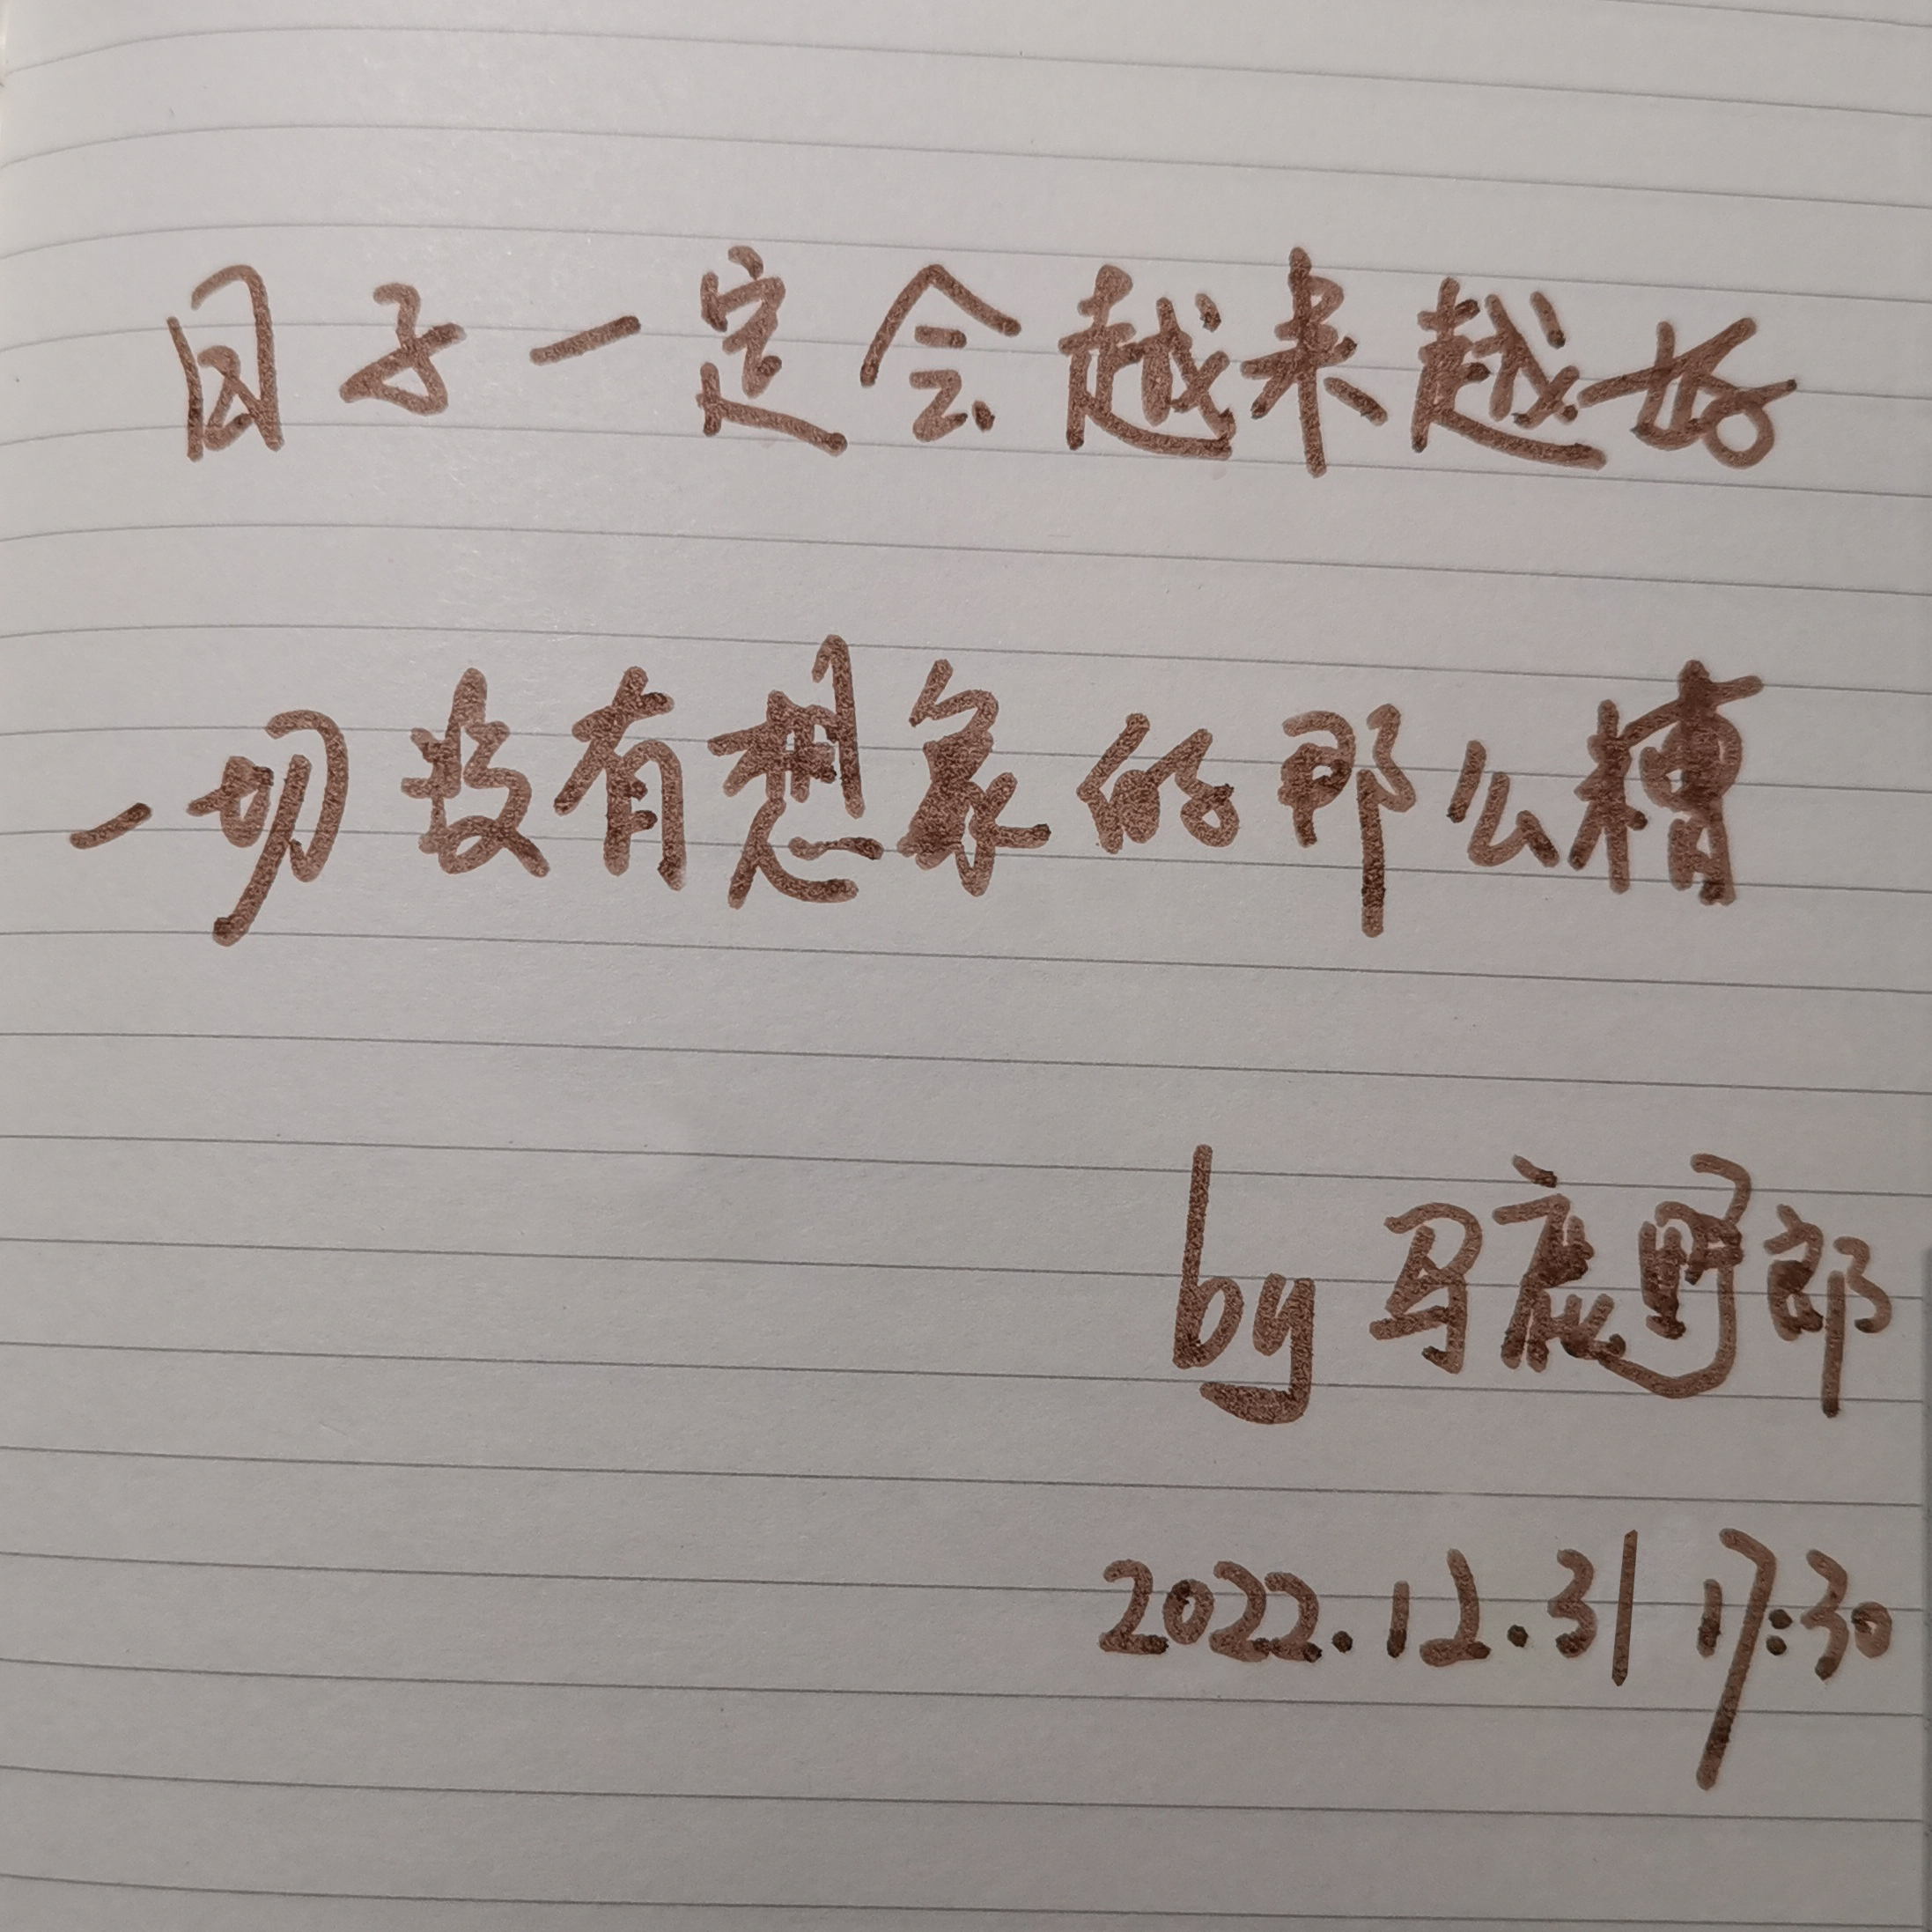 日子一定会越来越好
一切没有想象的那么糟
by 马鹿野郎
2022.12.31 17:30